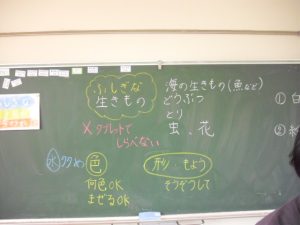 ふしぎな
生きもの
海の生きもの(魚など)
どうぶつ
とり
虫、花
×タブレットで
しらべない
色
何色OK
まぜるOK
形・もよう
そうぞうして
①
②